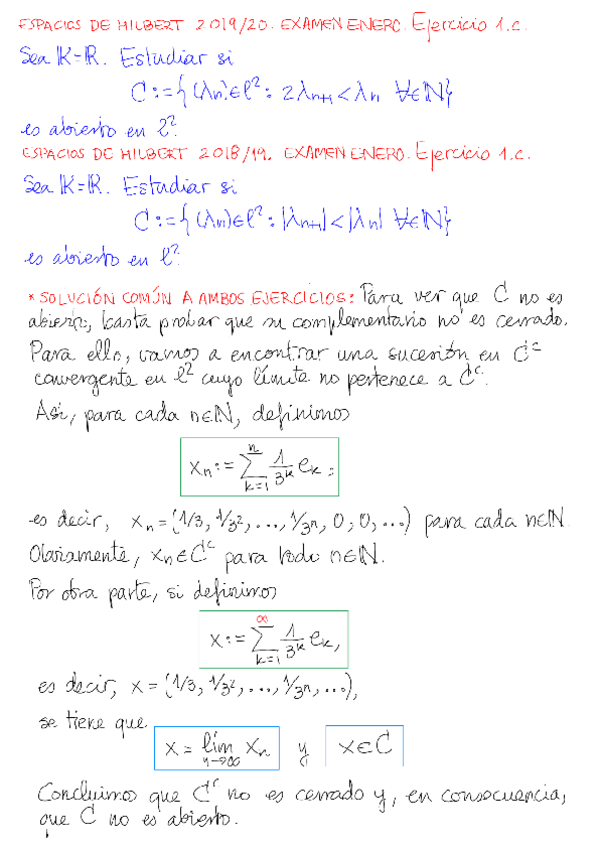 ESPACIOS DE HILBERT 2019/20. EXAMEN ENERO. Ejercicio 1.c.
Sea K=R. Estudiar si
C:={(λn)∈ℓ²: 2λn+1<λn ∀∈N}
es abierto en ℓ².
ESPACIOS DE HILBERT 2018/19. EXAMEN ENERO. Ejercicio 1.c.
Sea K=R. Estudiar si
C:={(λn)∈ℓ²: |λn+1|<|λn| ∀∈N}
es abierto en ℓ².
* SOLUCIÓN COMÚN A AMBOS EJERCICIOS: Para ver que C no es
abierto, basta probar que su complementario no es cerrado.
Para ello, vamos a encontrar una sucesión en Cᶜ
convergente en ℓ² cuyo límite no pertenece a Cᶜ.
Así, para cada n∈N, definimos
xn:= ∑_{k=1}^{n} 1/3ᵏ ek,
es decir, xn=(1/3, 1/3², ..., 1/3ⁿ, 0, 0, ...) para cada n∈N.
Obviamente, xn∈Cᶜ para todo n∈N.
Por otra parte, si definimos
x:= ∑_{k=1}^{∞} 1/3ᵏ ek,
es decir, x=(1/3, 1/3², ..., 1/3ⁿ, ...),
se tiene que
x = lím_{n→∞} xn y x∈C
Concluimos que Cᶜ no es cerrado y, en consecuencia,
que C no es abierto.